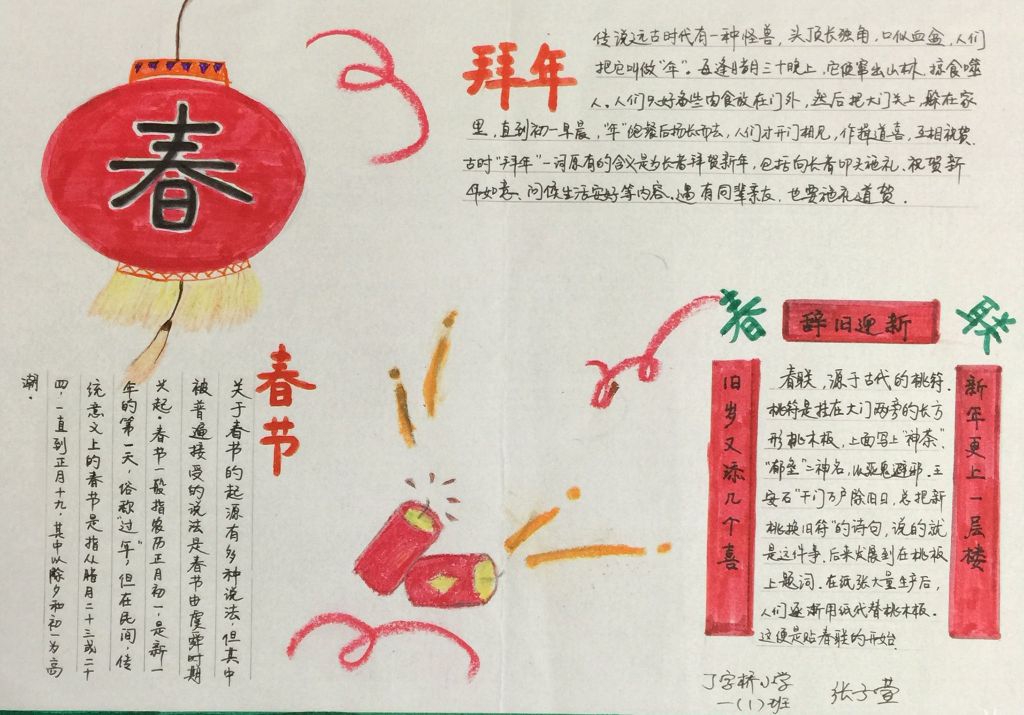 春
拜年
传说远古时代有一种怪兽，头顶长独角，口似血盆，人们
把它叫做“年”。每逢腊月三十晚上，它便窜出山林，掠食噬
人。人们只好备些肉食放在门外，然后把大门关上，躲在家
里，直到初一早晨，“年”饱餐后扬长而去，人们才开门相见，作揖道喜，互相祝贺.
古时“拜年”一词原有的含义是为长者拜贺新年，包括向长者叩头施礼、祝贺新
年如意、问候生活安好等内容.遇有同辈亲友，也要施礼道贺.
春节
关于春节的起源有多种说法，但其中
被普遍接受的说法是春节由虞舜时期
兴起。春节一般指农历正月初一，是新一
年的第一天，俗称“过年”，但在民间，传
统意义上的春节是指从腊月二十三或二十
四，一直到正月十九，其中以除夕和初一为高
潮。
春联
辞旧迎新
旧岁又添几个喜
新年更上一层楼
春联，源于古代的桃符.
桃符是挂在大门两旁的长方
形桃木板，上面写上“神荼”
“郁垒”二神名，以驱鬼避邪.王
安石“千门万户除旧日，总把新
桃换旧符”的诗句，说的就
是这件事，后来发展到在桃板
上题词。在纸张大量生产后，
人们逐渐用纸代替桃木板.
这便是贴春联的开始.
丁字桥小学
一(1)班
张子萱